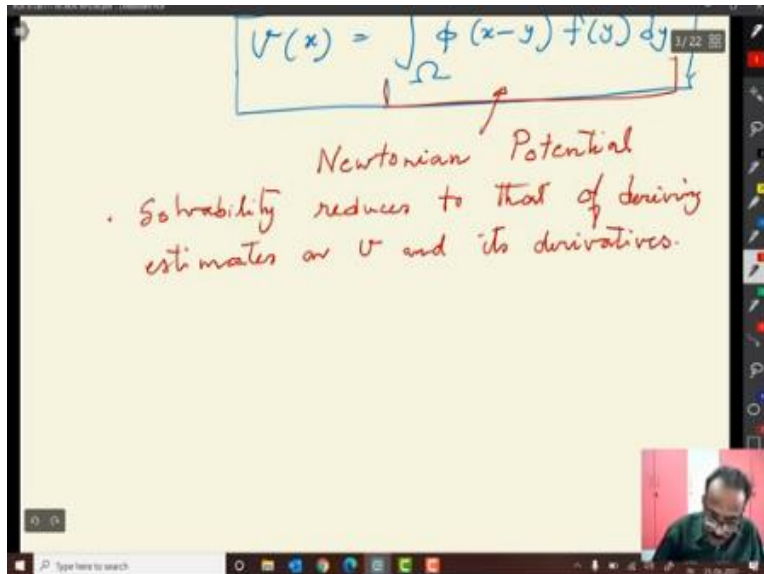 v(x) = ∫_Ω φ(x-y) f(y) dy
3/22
Newtonian Potential
. Solvability reduces to that of deriving
estimates on v and its derivatives.
Type here to search